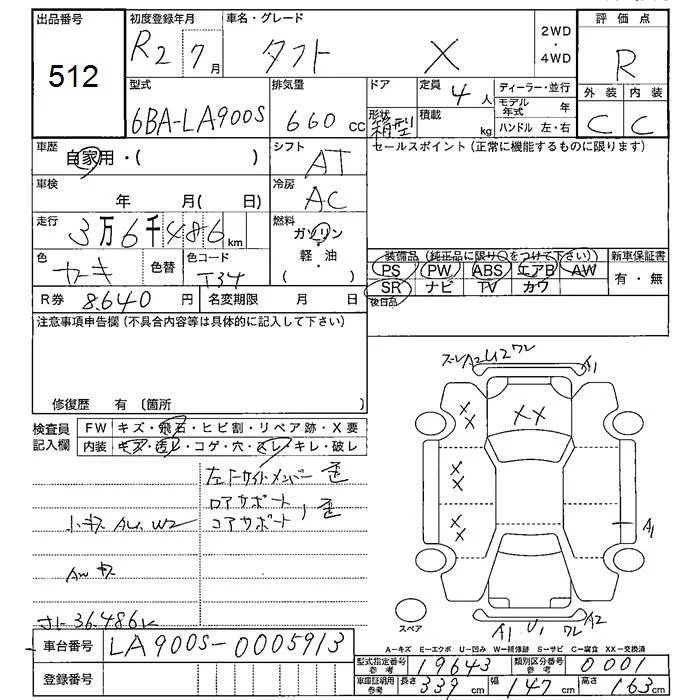 出品番号 初度登録年月 車名・グレード 2WD・4WD 評価点
512 R2 7月 タフト X R
型式 排気量 ドア 定員 4人 ディーラー・並行 外装 内装
6BA-LA900S 660cc 形状 箱型 積載 kg モデル年式 年 C C
ハンドル 左・右
車歴 自家用・( ) シフト AT セールスポイント(正常に機能するものに限ります)
車検 年 月( 日) 冷房 AC
走行 3万6千486km 燃料 ガソリン・軽・油 ( )
色 カーキ 色替 色コード T34 装備品(純正品に限り○をつけて下さい) 新車保証書
PS PW ABS エアB AW 有・無
SR ナビ TV カワ
R券 8.640円 名変期限 月 日 後日品
注意事項申告欄(不具合内容等は具体的に記入して下さい)
修復歴 有 〔箇所 )
検査員記入欄 FW キズ・飛石・ヒビ割・リペア跡・X要
内装 キズ・汚レ・コゲ・穴・スレ・キレ・破レ
左Fサイドメンバー歪
ロアサポート
コアサポート 歪
小キズ AU W2
AWキズ
36.486K
A2 U2 ワレ A1
XX
X X
X X
X X A1
スペア A1 U1 ワレ A2
A-キズ E-エクボ U-凹み W-補修跡 S-サビ C-腐食 XX-交換済
車台番号 LA900S-0005913
型式指定番号 参考 19643 類別区分番号 参考 0001
登録番号
車庫証明用 参考 長さ 339cm 幅 147cm 高さ 163cm